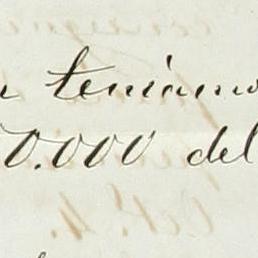 teníamo
0.000 del